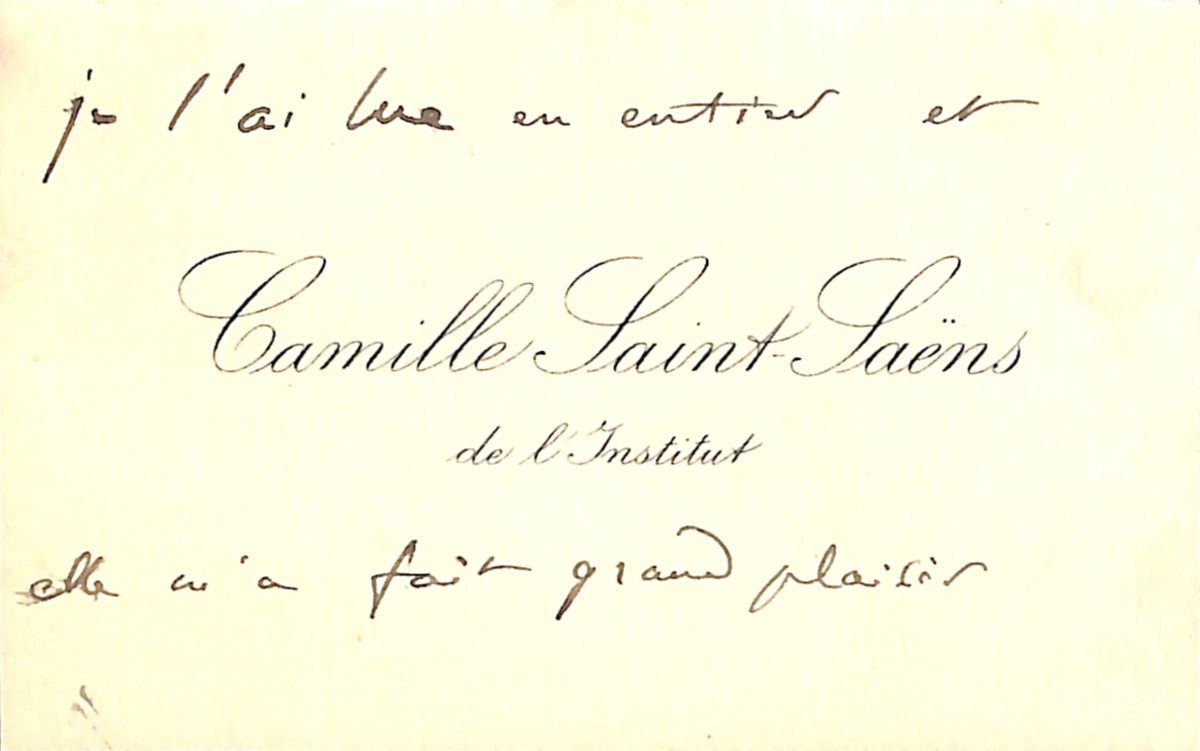 je l'ai lue en entier et
Camille Saint-Saëns
de l'Institut
elle m'a fait grand plaisir